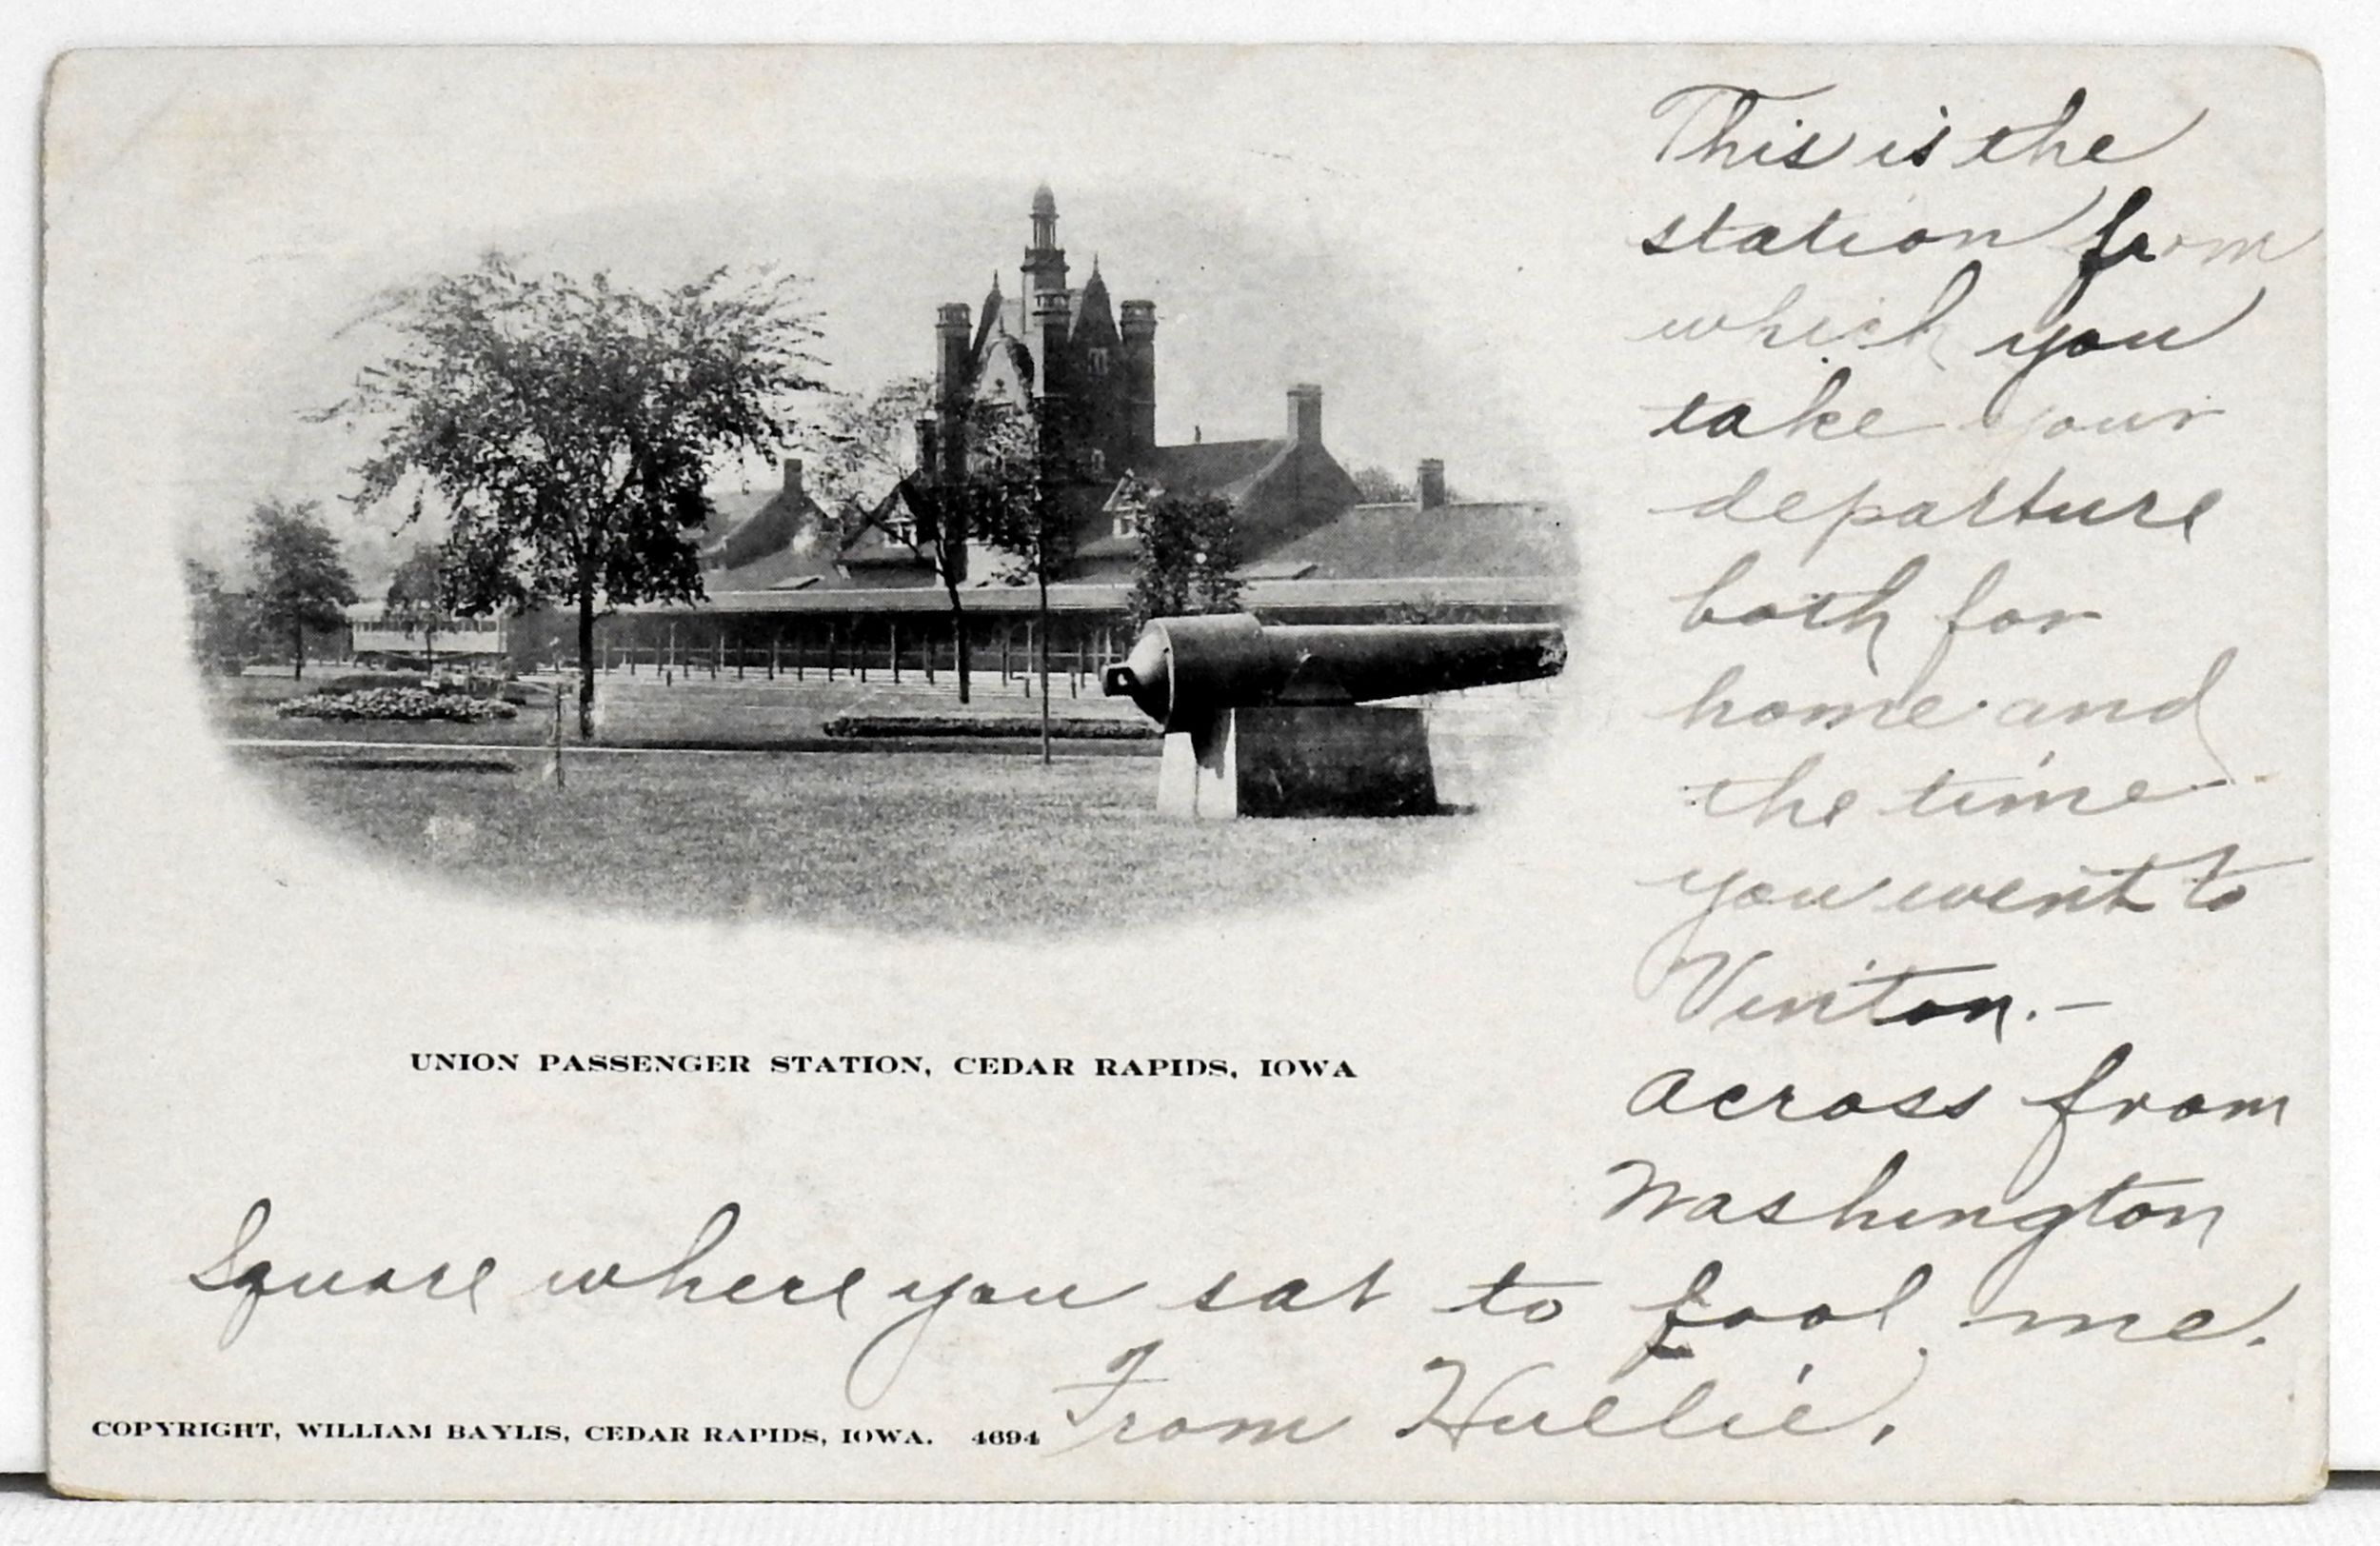 This is the
station from
which you
take your
departure
both for
home and
the time
you went to
Vinton.-
Across from
Washington
Square where you sat to fool me.
From
UNION PASSENGER STATION, CEDAR RAPIDS, IOWA
COPYRIGHT, WILLIAM BAYLIS, CEDAR RAPIDS, IOWA. 4694